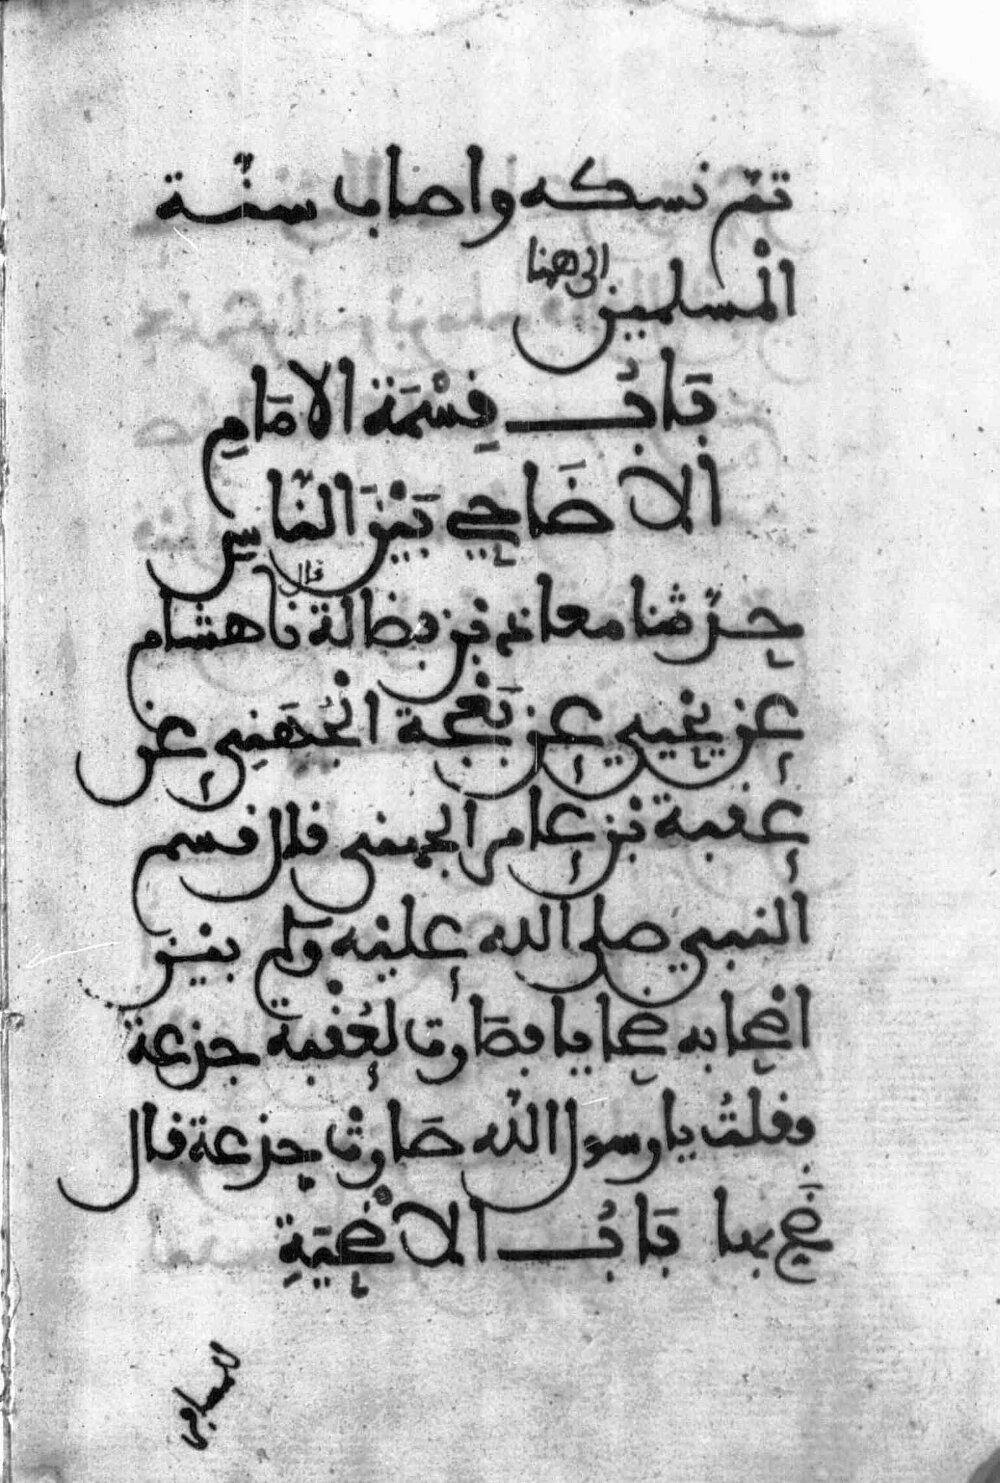 تم نسكه واصاب سنة
المسلمين الى ههنا
باب قِسْمَة الامَامِ
الاضَاحِي بَيْنَ النَّاسِ
حدّثنا معاذ بن فضالة قال نا هشام
عن يحيى عن بَعْجة الجُهَنِي عن
عقبة بن عامر الجهني قال قسم
النبي صلى الله عليه وسلم بين
اصحابه ضحايا فصَارت لعُقْبة جذعة
فقلتُ يا رسول الله صَارتْ جذعة قال
ضَحِّ بها بَابُ الاضْحِيَةِ
للمسافر